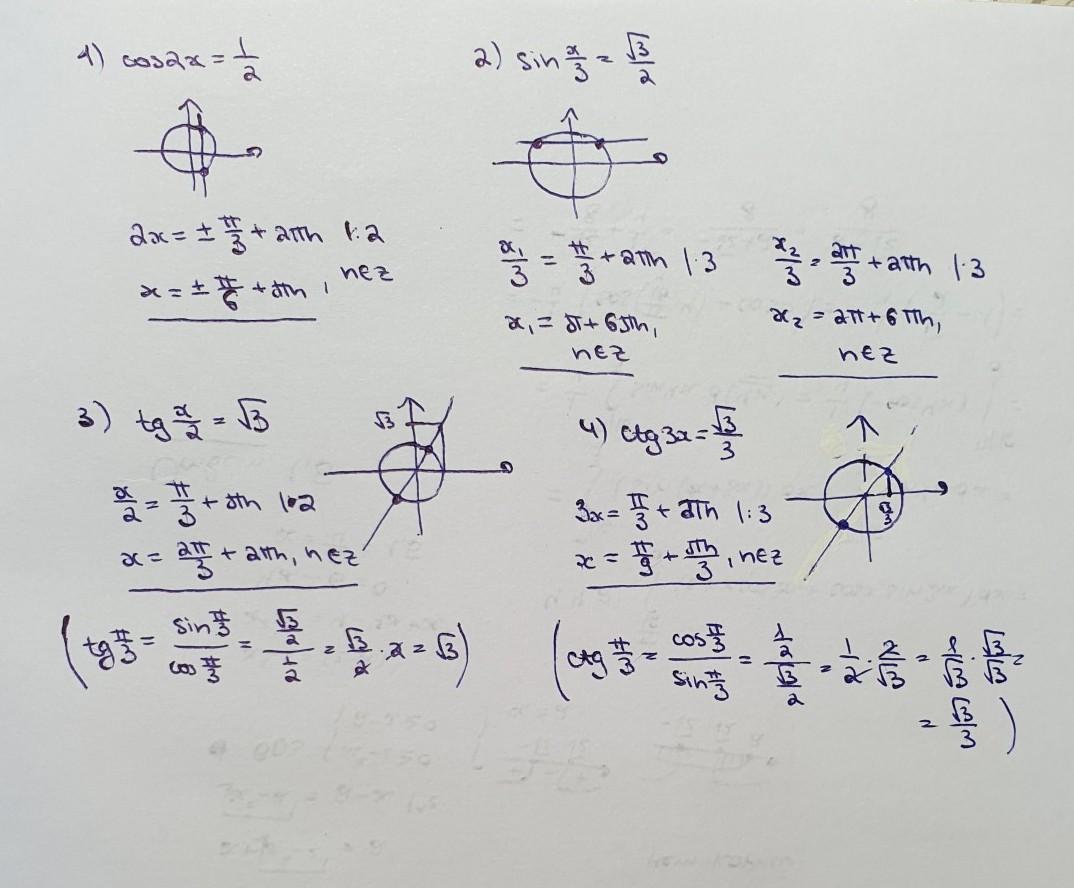 1) cos2x = 1/2
2x = ± π/3 + 2πn |:2
x = ± π/6 + πn, n∈z
2) sin x/3 = √3/2
x₁/3 = π/3 + 2πn |·3
x₁ = π + 6πn,
n∈z
x₂/3 = 2π/3 + 2πn |·3
x₂ = 2π + 6πn,
n∈z
3) tg x/2 = √3
√3
x/2 = π/3 + πn |·2
x = 2π/3 + 2πn, n∈z
(tg π/3 = sin π/3 / cos π/3 = √3/2 / 1/2 = √3/2 · 2 = √3)
4) ctg 3x = √3/3
π/3
3x = π/3 + πn |:3
x = π/9 + πn/3, n∈z
(ctg π/3 = cos π/3 / sin π/3 = 1/2 / √3/2 = 1/2 · 2/√3 = 1/√3 · √3/√3 =
= √3/3)